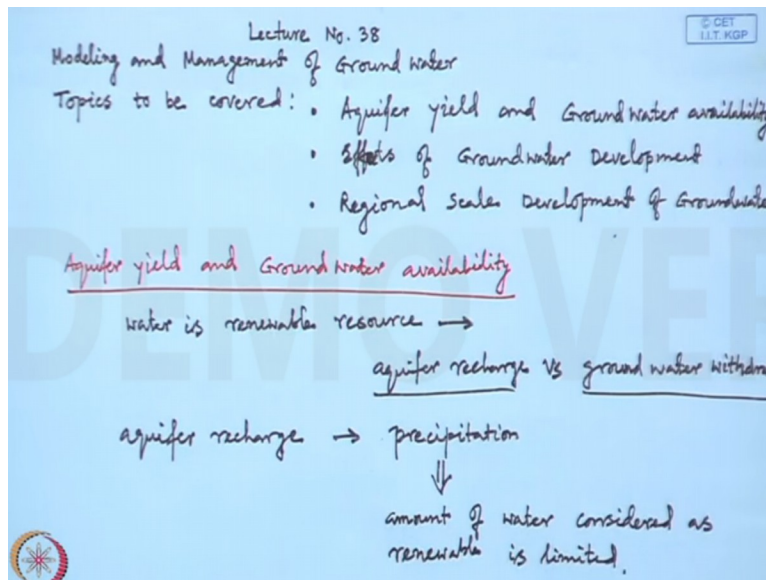 Lecture No. 38
© CET
I.I.T. KGP
Modeling and Management of Ground Water
Topics to be covered: • Aquifer yield and Groundwater availability
• Effects of Groundwater Development
• Regional Scale Development of Groundwate
Aquifer yield and Groundwater availability
DEMO VE
water is renewable resource →
aquifer recharge vs ground water withdra
aquifer recharge → precipitation
⇓
amount of water considered as
renewable is limited.